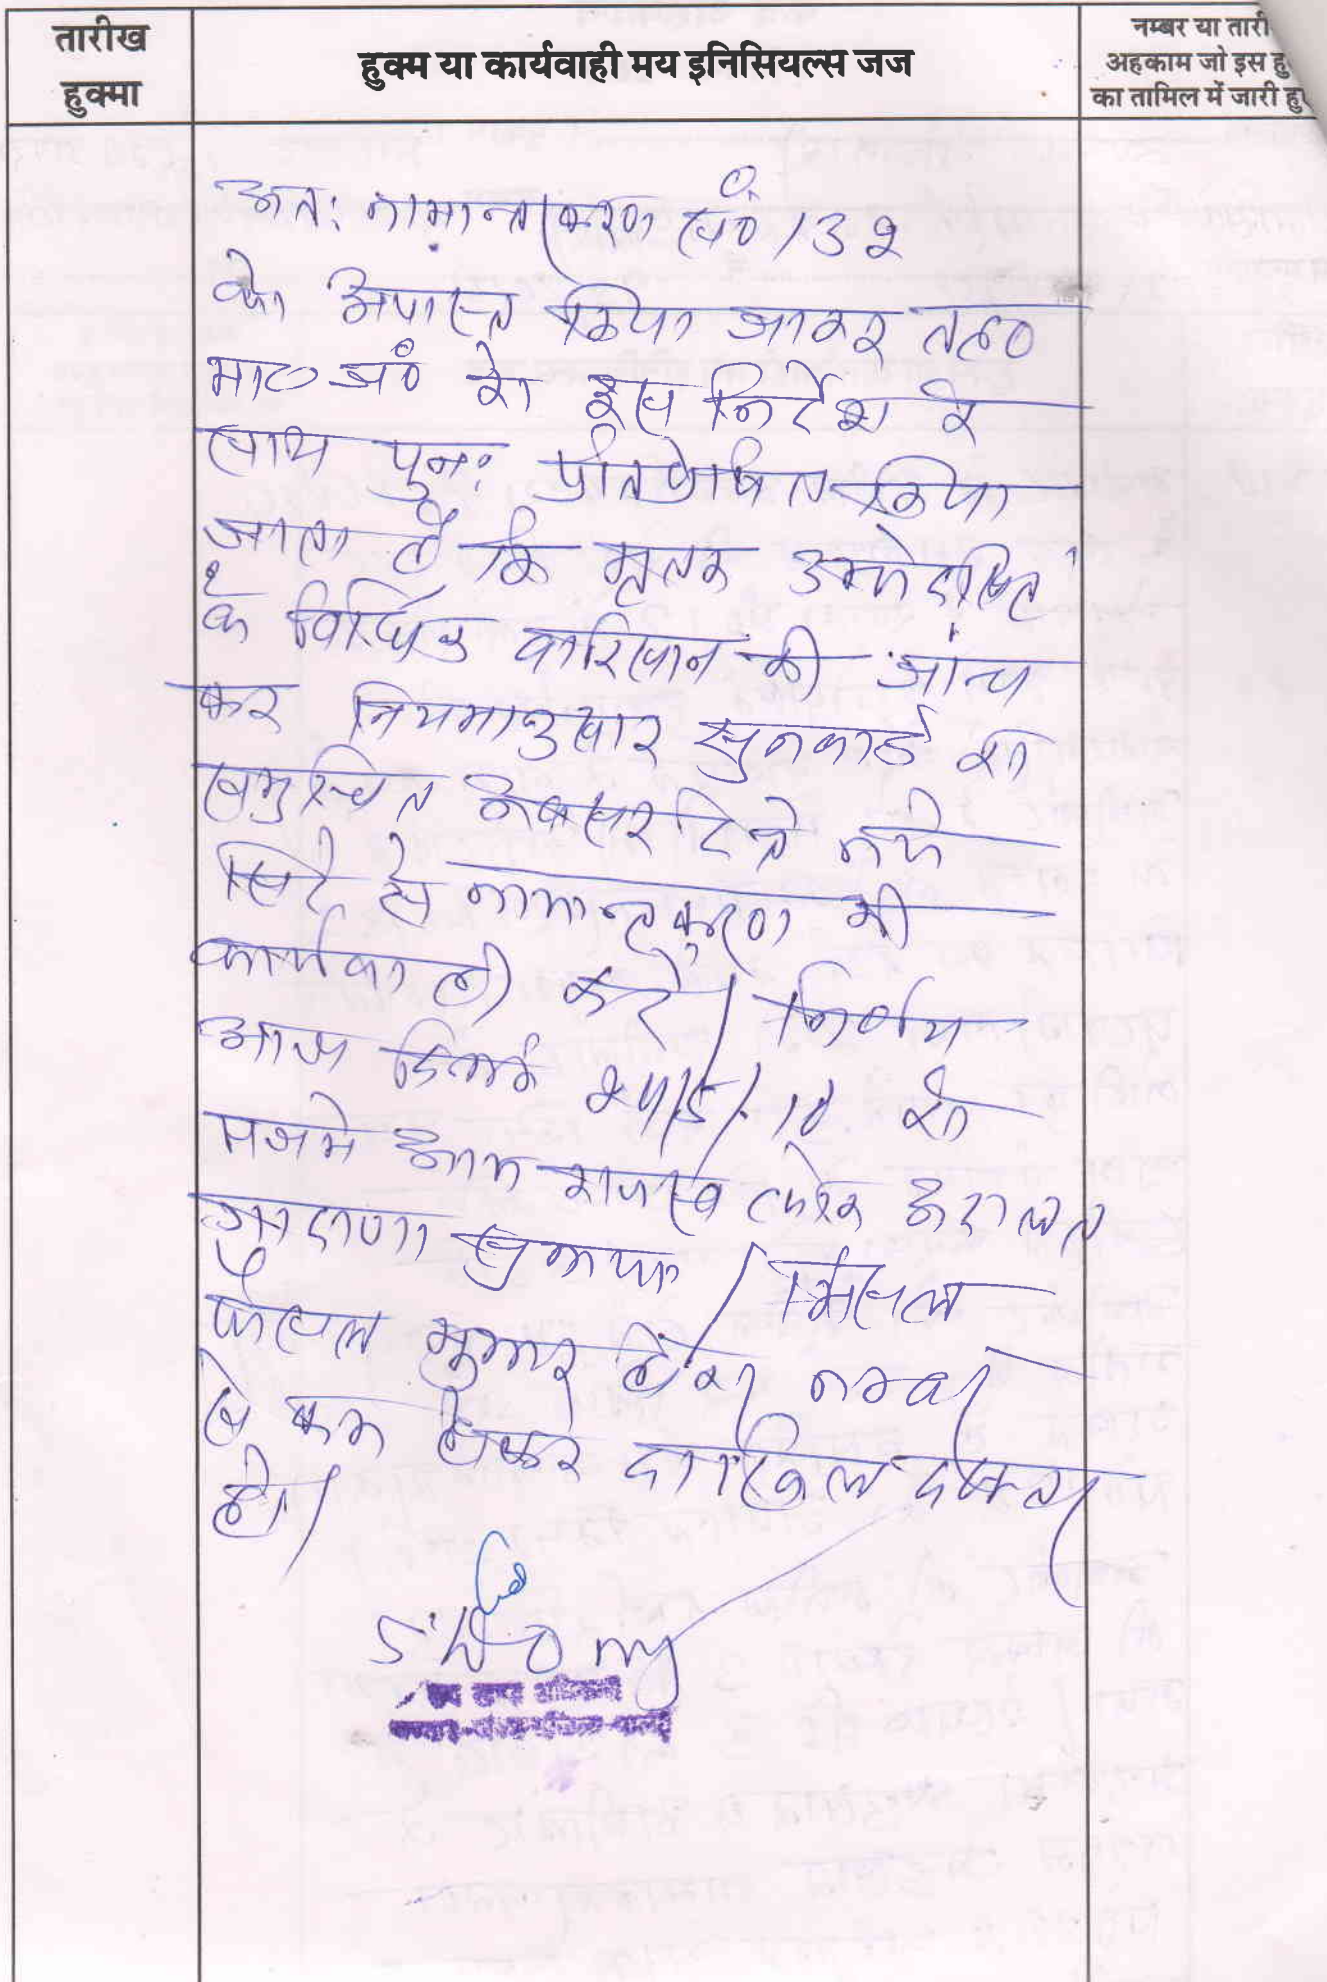 तारीख
हुक्मा
हुक्म या कार्यवाही मय इनिसियल्स जज
नम्बर या तारी
अहकाम जो इस हु
का तामिल में जारी हु
अतः नामान्तकरण सं० 132
को अपास्त किया जाकर तह०
मा० जं० को इस निर्देश के
साथ पुनः प्रतिप्रेषित किया
जाता है कि मृतक उम्मेदसिंह
के विधिक वारिसान की जांच
कर नियमानुसार सुनवाई का
समुचित अवसर दिये नये
सिरे से नामान्तकरण की
कार्यवाही करे। निर्णय
आज दिनांक 24/5/10 को
मजमे आम राजस्व लोक अदालत
सुनाया। मिसल
फैसल शुमार होकर नम्बर
से कम होकर दाखिल दफ्तर
हो।
उप खण्ड अधिकारी